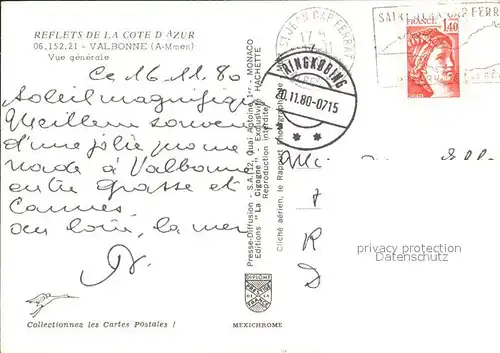 REFLETS DE LA COTE D'AZUR
06.152.21 - VALBONNE (A-Mmes)
Vue générale
Ce 16.11.80
Soleil magnifique
Meilleur souvenir
d'une jolie prome
nade à Valbonne
entre Grasse et
Cannes.
au loin, la mer
Collectionnez les Cartes Postales !
Presse-Diffusion - S.A. (12, Quai Antoine 1er - MONACO
Editions "La Cigogne" - Exclusivité HACHETTE
Reproduction interdite
Cliché aérien, le Rapport Photographique
DIPLOME
PRESTIGE
DE LA
FRANCE
MEXICHROME
ST JEAN CAP FERRAT
RINGKØBING
20.11.80-0715
SAINT JEAN CAP FERRAT
FRANCE
1,40
privacy protection watermark
on real picture